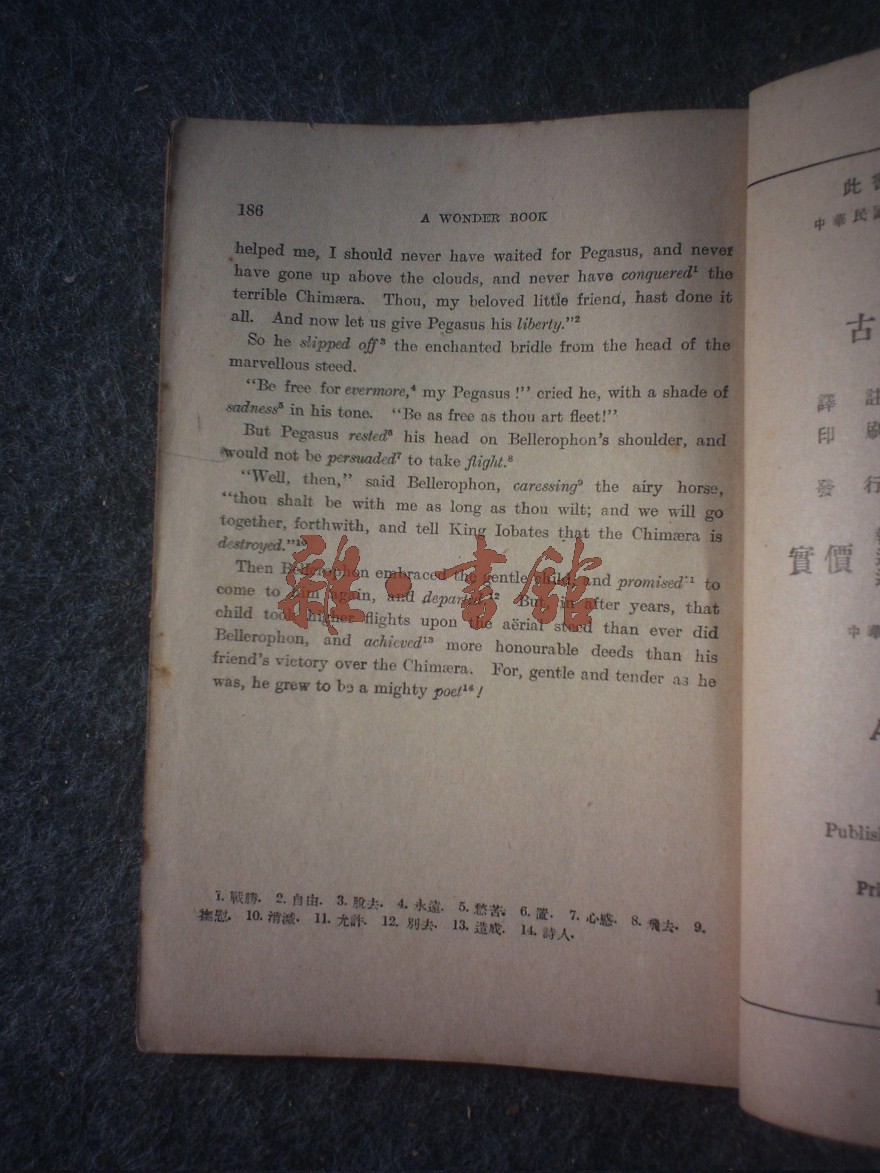 186
A WONDER BOOK
helped me, I should never have waited for Pegasus, and never
have gone up above the clouds, and never have conquered¹ the
terrible Chimæra. Thou, my beloved little friend, hast done it
all. And now let us give Pegasus his liberty."²
So he slipped off³ the enchanted bridle from the head of the
marvellous steed.
"Be free for evermore,⁴ my Pegasus!" cried he, with a shade of
sadness⁵ in his tone. "Be as free as thou art fleet!"
But Pegasus rested⁶ his head on Bellerophon's shoulder, and
would not be persuaded⁷ to take flight.⁸
"Well, then," said Bellerophon, caressing⁹ the airy horse,
"thou shalt be with me as long as thou wilt; and we will go
together, forthwith, and tell King Iobates that the Chimæra is
destroyed."¹⁰
Then Bellerophon embraced the gentle child, and promised¹¹ to
come to him again, and departed.¹² But, in after years, that
child took higher flights upon the aërial steed than ever did
Bellerophon, and achieved¹³ more honourable deeds than his
friend's victory over the Chimæra. For, gentle and tender as he
was, he grew to be a mighty poet¹⁴!
1. 戰勝. 2. 自由. 3. 脫去. 4. 永遠. 5. 愁苦. 6. 置. 7. 心感. 8. 飛去. 9.
撫慰. 10. 消滅. 11. 允許. 12. 別去. 13. 造成. 14. 詩人.
雜·書館
此
中華民
古
譯 註
印 刷
發 行
實價
中華
A
Publis
Pri